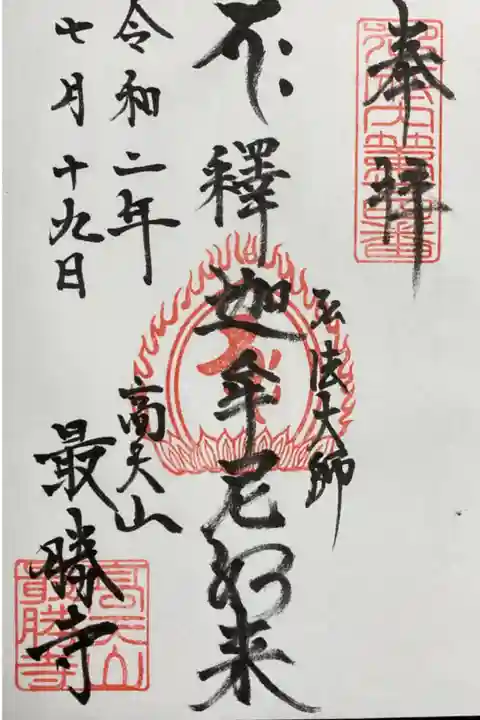 奉拝
弘法大師
釋迦牟尼如来
高天山
最勝寺
令和二年
七月十九日
高天山
最勝寺